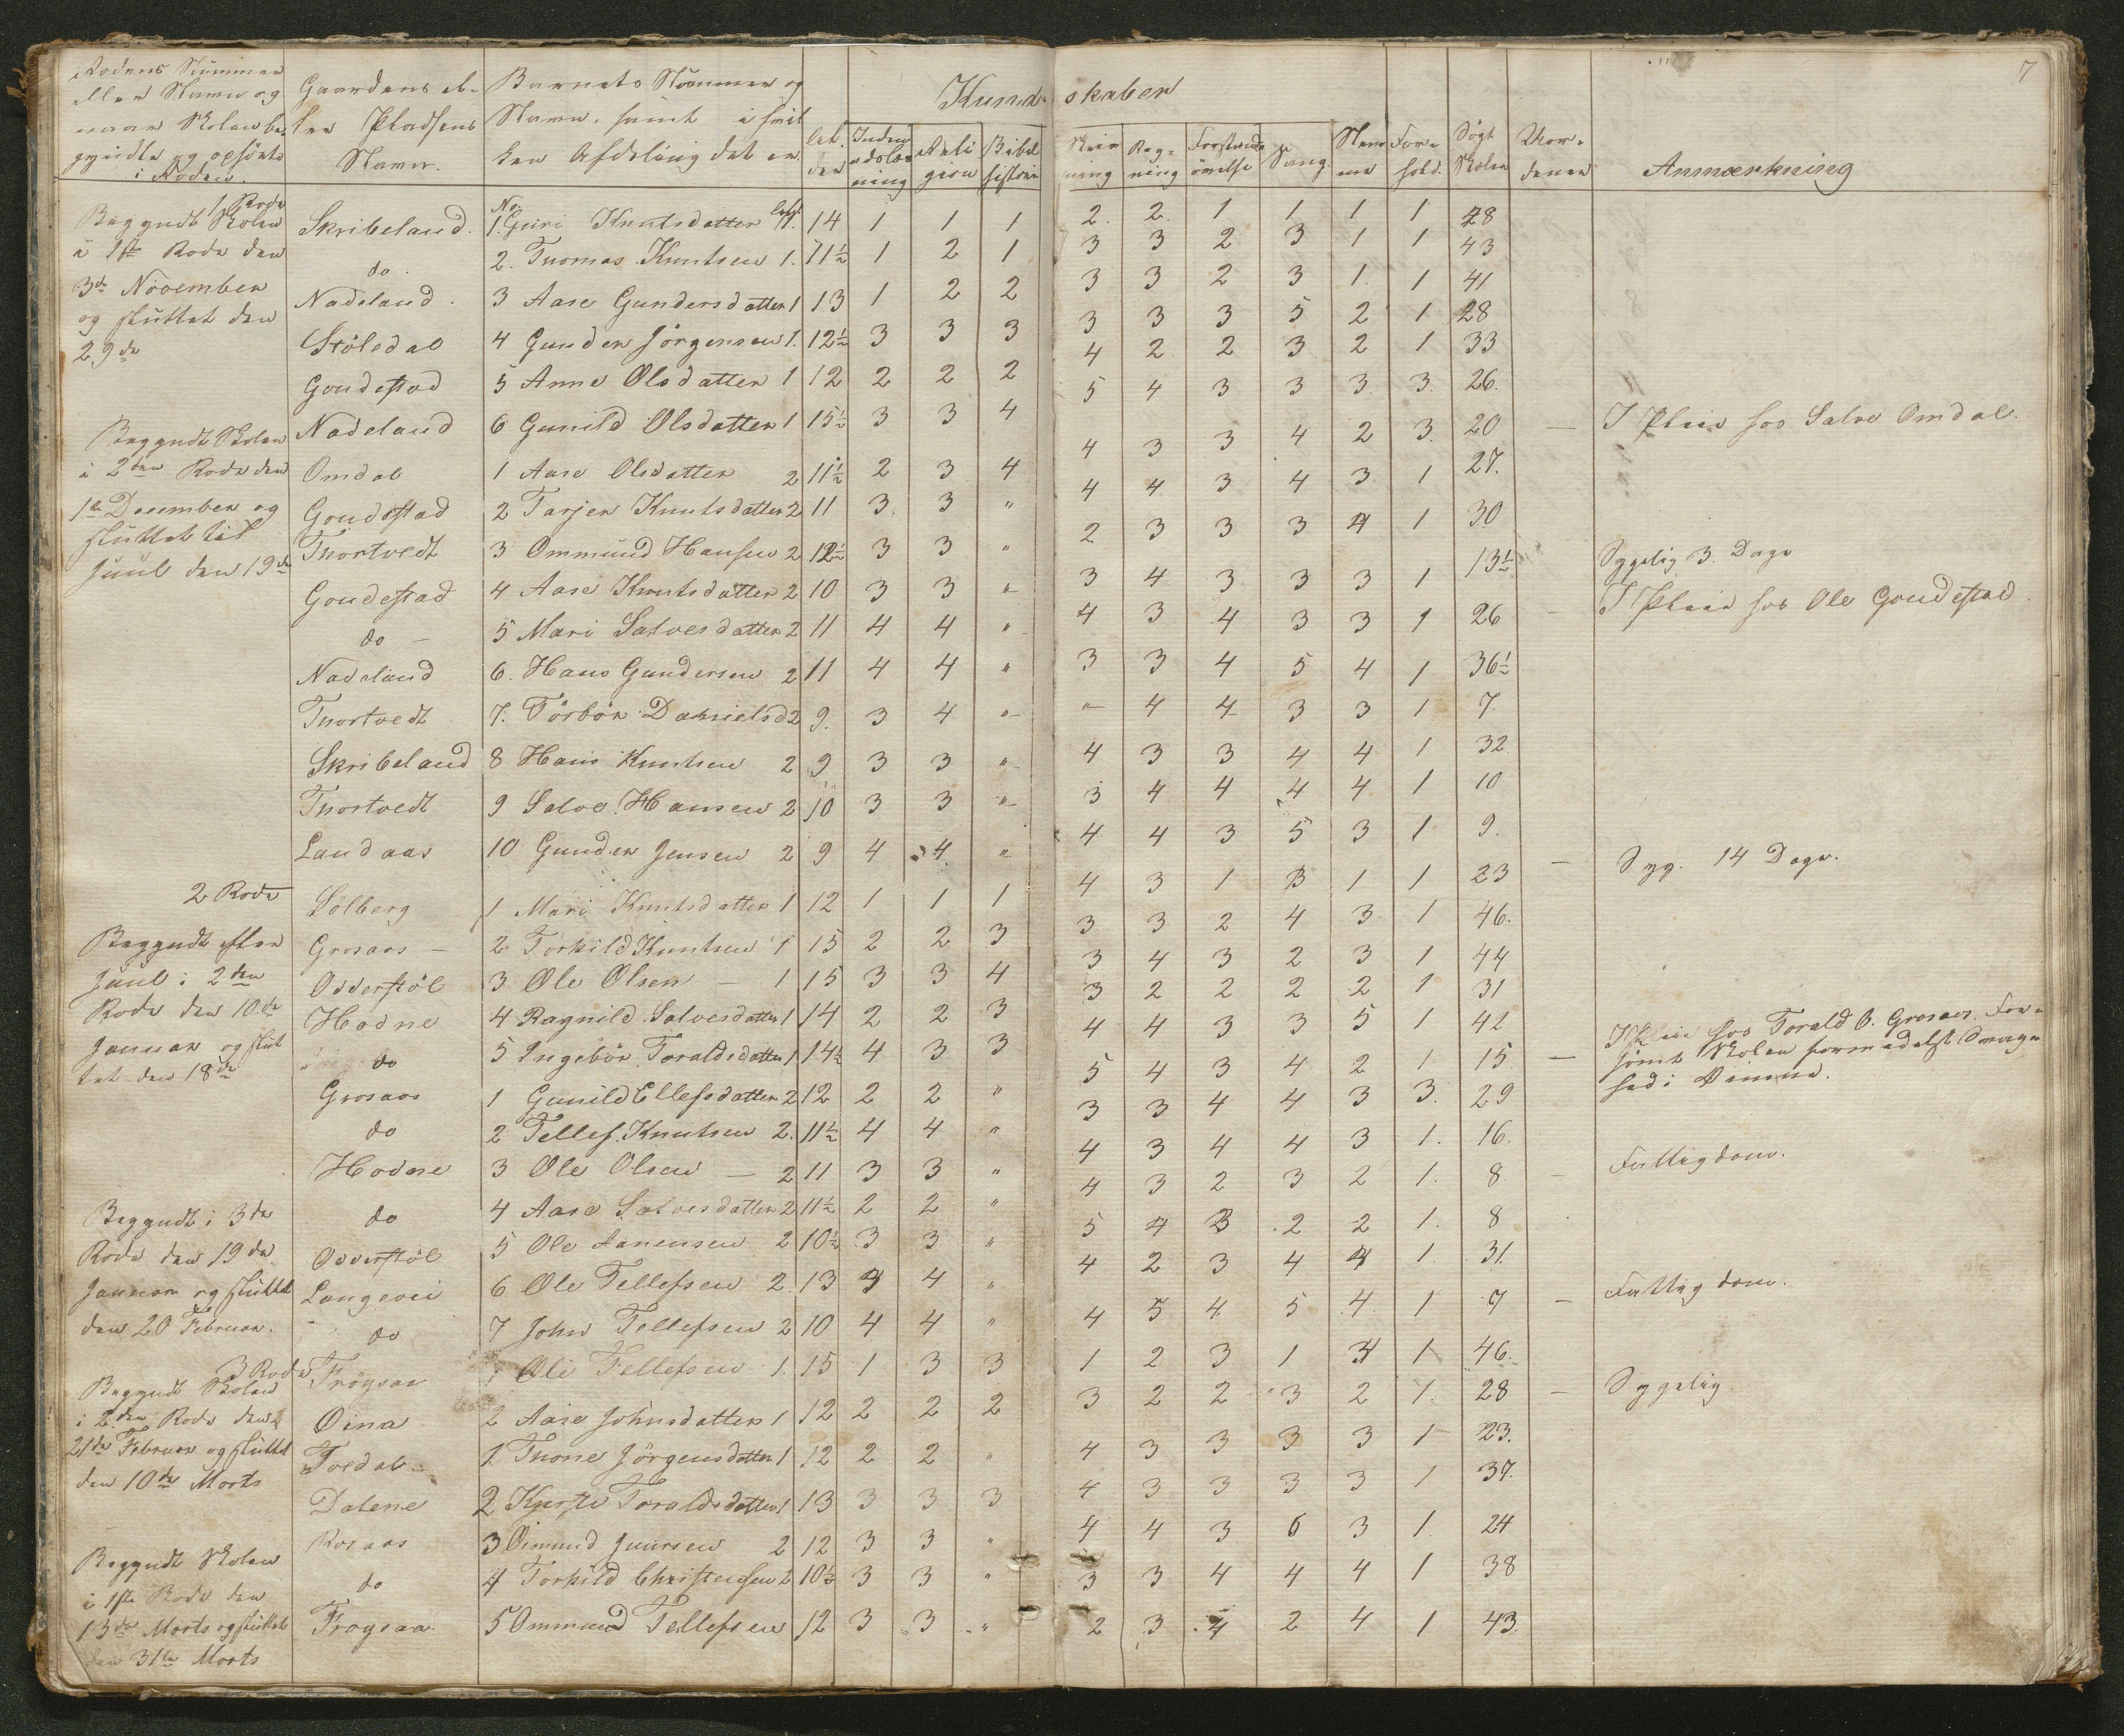 7
Rodens Nummer
eller Navn og
naar Skolen be-
gyndte og ophörte
i Roden.
Gaardens el-
ler Pladsens
Navn.
Barnets Nummer og
Navn, samt i hvil
ken Afdeling det er.
Al-
der
Kundskaber
Inden
adslæs
ning
Reli
gion
Bibel
historie
Skriv
ning
Reg-
ning
Forstands
övelse
Sang.
Nem
me
For-
hold.
Sögt
Skolen
Anmærkning
1 Rode
Begyndt Skolen
i 1ste Rode den
3de November
og sluttet den
29de
Begyndt Skolen
i 2den Rode den
1ste December og
sluttet til
Juul den 19de
2 Rode
Begyndt efter
Juul i 2den
Rode den 10de
Januar og slut
tet den 18de
Begyndt i 3de
Rode den 19de
Januar og sluttet
den 20 Februar.
3 Rode
Begyndt Skolen
i 2den Rode den
21de Februar og sluttet
den 10de Marts
Begyndt Skolen
i 1ste Rode den
13de Marts og sluttet
den 31te Marts
Skribeland. No. 1. Guri Knutsdatter 1. 14 1 1 1 2. 2. 1 1 1 1 48
do. 2. Thomas Knutsen 1. 11½ 1 2 1 3 3 2 3 1 1 43
Nadeland. 3 Aase Gundersdatter 1 13 1 2 2 3 3 2 3 1. 1 41
Stöledal 4 Gunder Jörgensen 1. 12½ 3 3 3 3 3 3 5 2 1 28
Goudestad 5 Anne Olsdatter 1 12 2 2 2 4 2 2 3 2 1 33
Nadeland 6 Gunild Olsdatter 1 15½ 3 3 4 5 4 3 3 3 3. 26.
Omdal 1 Aase Olsdatter 2 11½ 2 3 4 4 3 3 4 2 3. 20 — I Pleie hos Salve Omdal.
Goudestad 2 Tarjer Knutsdatter 2 11 3 3 " 4 4 3 4 3 1 27.
Thortvedt 3 Ommund Hansen 2 12½ 3 3 " 2 3 3 3 4 1 30
Goudestad 4 Aase Knutsdatter 2 10 3 3 " 3 4 3 3 3 1 13½ Sygelig 3. Dage
do — 5 Mari Salvesdatter 2 11 4 4 " 4 3 4 3 3 1 26 — I Pleie hos Ole Goudestad.
Nadeland 6. Hans Gundersen 2 11 4 4 " 3 3 4 5 4 1 36½
Thortvedt 7. Törbör Danielsd 2 9. 3 4 " " 4 4 3 3 1 7.
Skribeland 8 Hans Knutsen 2 9 3 3 " 4 3 3 4 4 1 32.
Thortvedt 9 Salve Hansen 2 10 3 3 " 3 4 4 4 4 1 10
Landaas 10 Gunder Jensen 2 9 4 4. " 4 4 3 5 3 1 9.
Solberg 1 Mari Knutsdatter 1 12 1 1 1 4 3 1 3 1 1 23 — Syg. 14 Dage.
Grosaas — 2 Torkild Knutsen 1 15 2 2 3 3 3 2 4 3 1 46.
Odderstöl 3 Ole Olsen — 1 15 3 3 4 3 4 3 2 3 1 44
Hodne 4 Ragnild Salvesdatter 1 14 2 2 3 3 2 2 2 2 1 31
" do 5 Ingebör Toraldsdatter 1 14½ 4 3 3 4 4 3 3 5 1 42
Grosaas 1 Gunild Ellefsdatter 2 12 2 2 " 5 4 3 4 2 1 15 — I Pleie hos Torald O. Grosaas. For-
sömt Skolen formedelst Svag-
hed i
do 2 Tellef Knutsen 2. 11½ 4 4 " 3 3 4 4 3 3. 29
Hodne 3 Ole Olsen — 2 11 3 3 " 4 3 4 4 3 1. 16.
do 4 Aase Salvesdatter 2 11½ 2 2 " 4 3 2 3 2 1. 8. — Fattigdom.
Odderstöl 5 Ole Aanensen 2 10½ 3 3 " 5 4 3 2 2 1. 8
Langevei 6 Ole Tellefsen 2. 13 4 4 " 4 2 3 4 4 1. 31.
do 7 John Tellefsen 2 10 4 4 " 4 5 4. 5 4. 1 7 — Fattigdom.
Fröysaa 1 Ole Tellefsen 1. 15 1 3 3 1 2 3 1 3 1 46.
Öina 2 Aase Johnsdatter 1 12 2 2 2 3 2 2 3 2 1. 28 — Sygelig.
Tvedal 1 Thone Jörgensdatter 1 12 2 2 " 4 3 3 3 3 1 23.
Dalene 2 Kjersti Toraldsdatter 1 13 3 3 3 4 3 3 3 3 1 37.
Rosaas 3 Ömund Juursen 2 12 3 3 " 4 4 3 6 3 1. 24
do 4 Torkild Christensen 2 10½ 3 3 " 3 3 4 4 4 1 38
Fröysaa 5 Ommund Tellefsen 12 3 3 " 2 3 4 2 4 1 43.